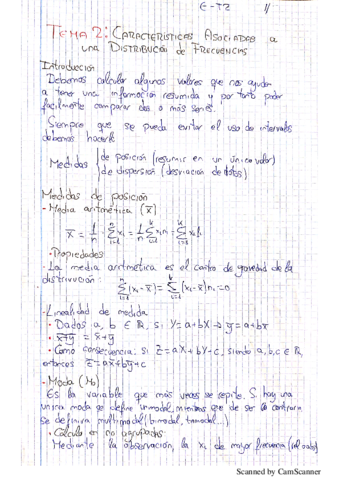 E-T2
TEMA 2: CARACTERÍSTICAS ASOCIADAS A
UNA DISTRIBUCIÓN DE FRECUENCIAS
Introducción
Debemos calcular algunos valores que nos ayuden
a tener una información resumida y por tanto poder
fácilmente comparar dos o más series.
Siempre que se pueda evitar el uso de intervalos
debemos hacerlo
Medidas { de posición (resumir en un único valor)
de dispersión (desviación de datos)
Medidas de posición
· Media aritmética (x̄)
x̄ = 1/n · Σ xi = 1/n Σ xi ni = Σ xi fi
· Propiedades
- La media aritmética es el centro de gravedad de la
distribución:
Σ (xi - x̄) = Σ (xi - x̄) ni = 0
- Linealidad de medida
· Dados a, b ∈ R, si Y = a + bX → ȳ = a + bx̄
· x+y = x̄ + ȳ
· Como consecuencia: si Z = aX + bY + c, siendo a, b, c ∈ R,
entonces z̄ = ax̄ + bȳ + c
· Moda (Mo)
Es la variable que más veces se repite. Si hay una
única moda se define unimodal, mientras que de ser lo contrario
se definiría multimodal (bimodal, trimodal...)
· Cálculo en no agrupados
Mediante la observación, la xi de mayor frecuencia
Scanned by CamScanner